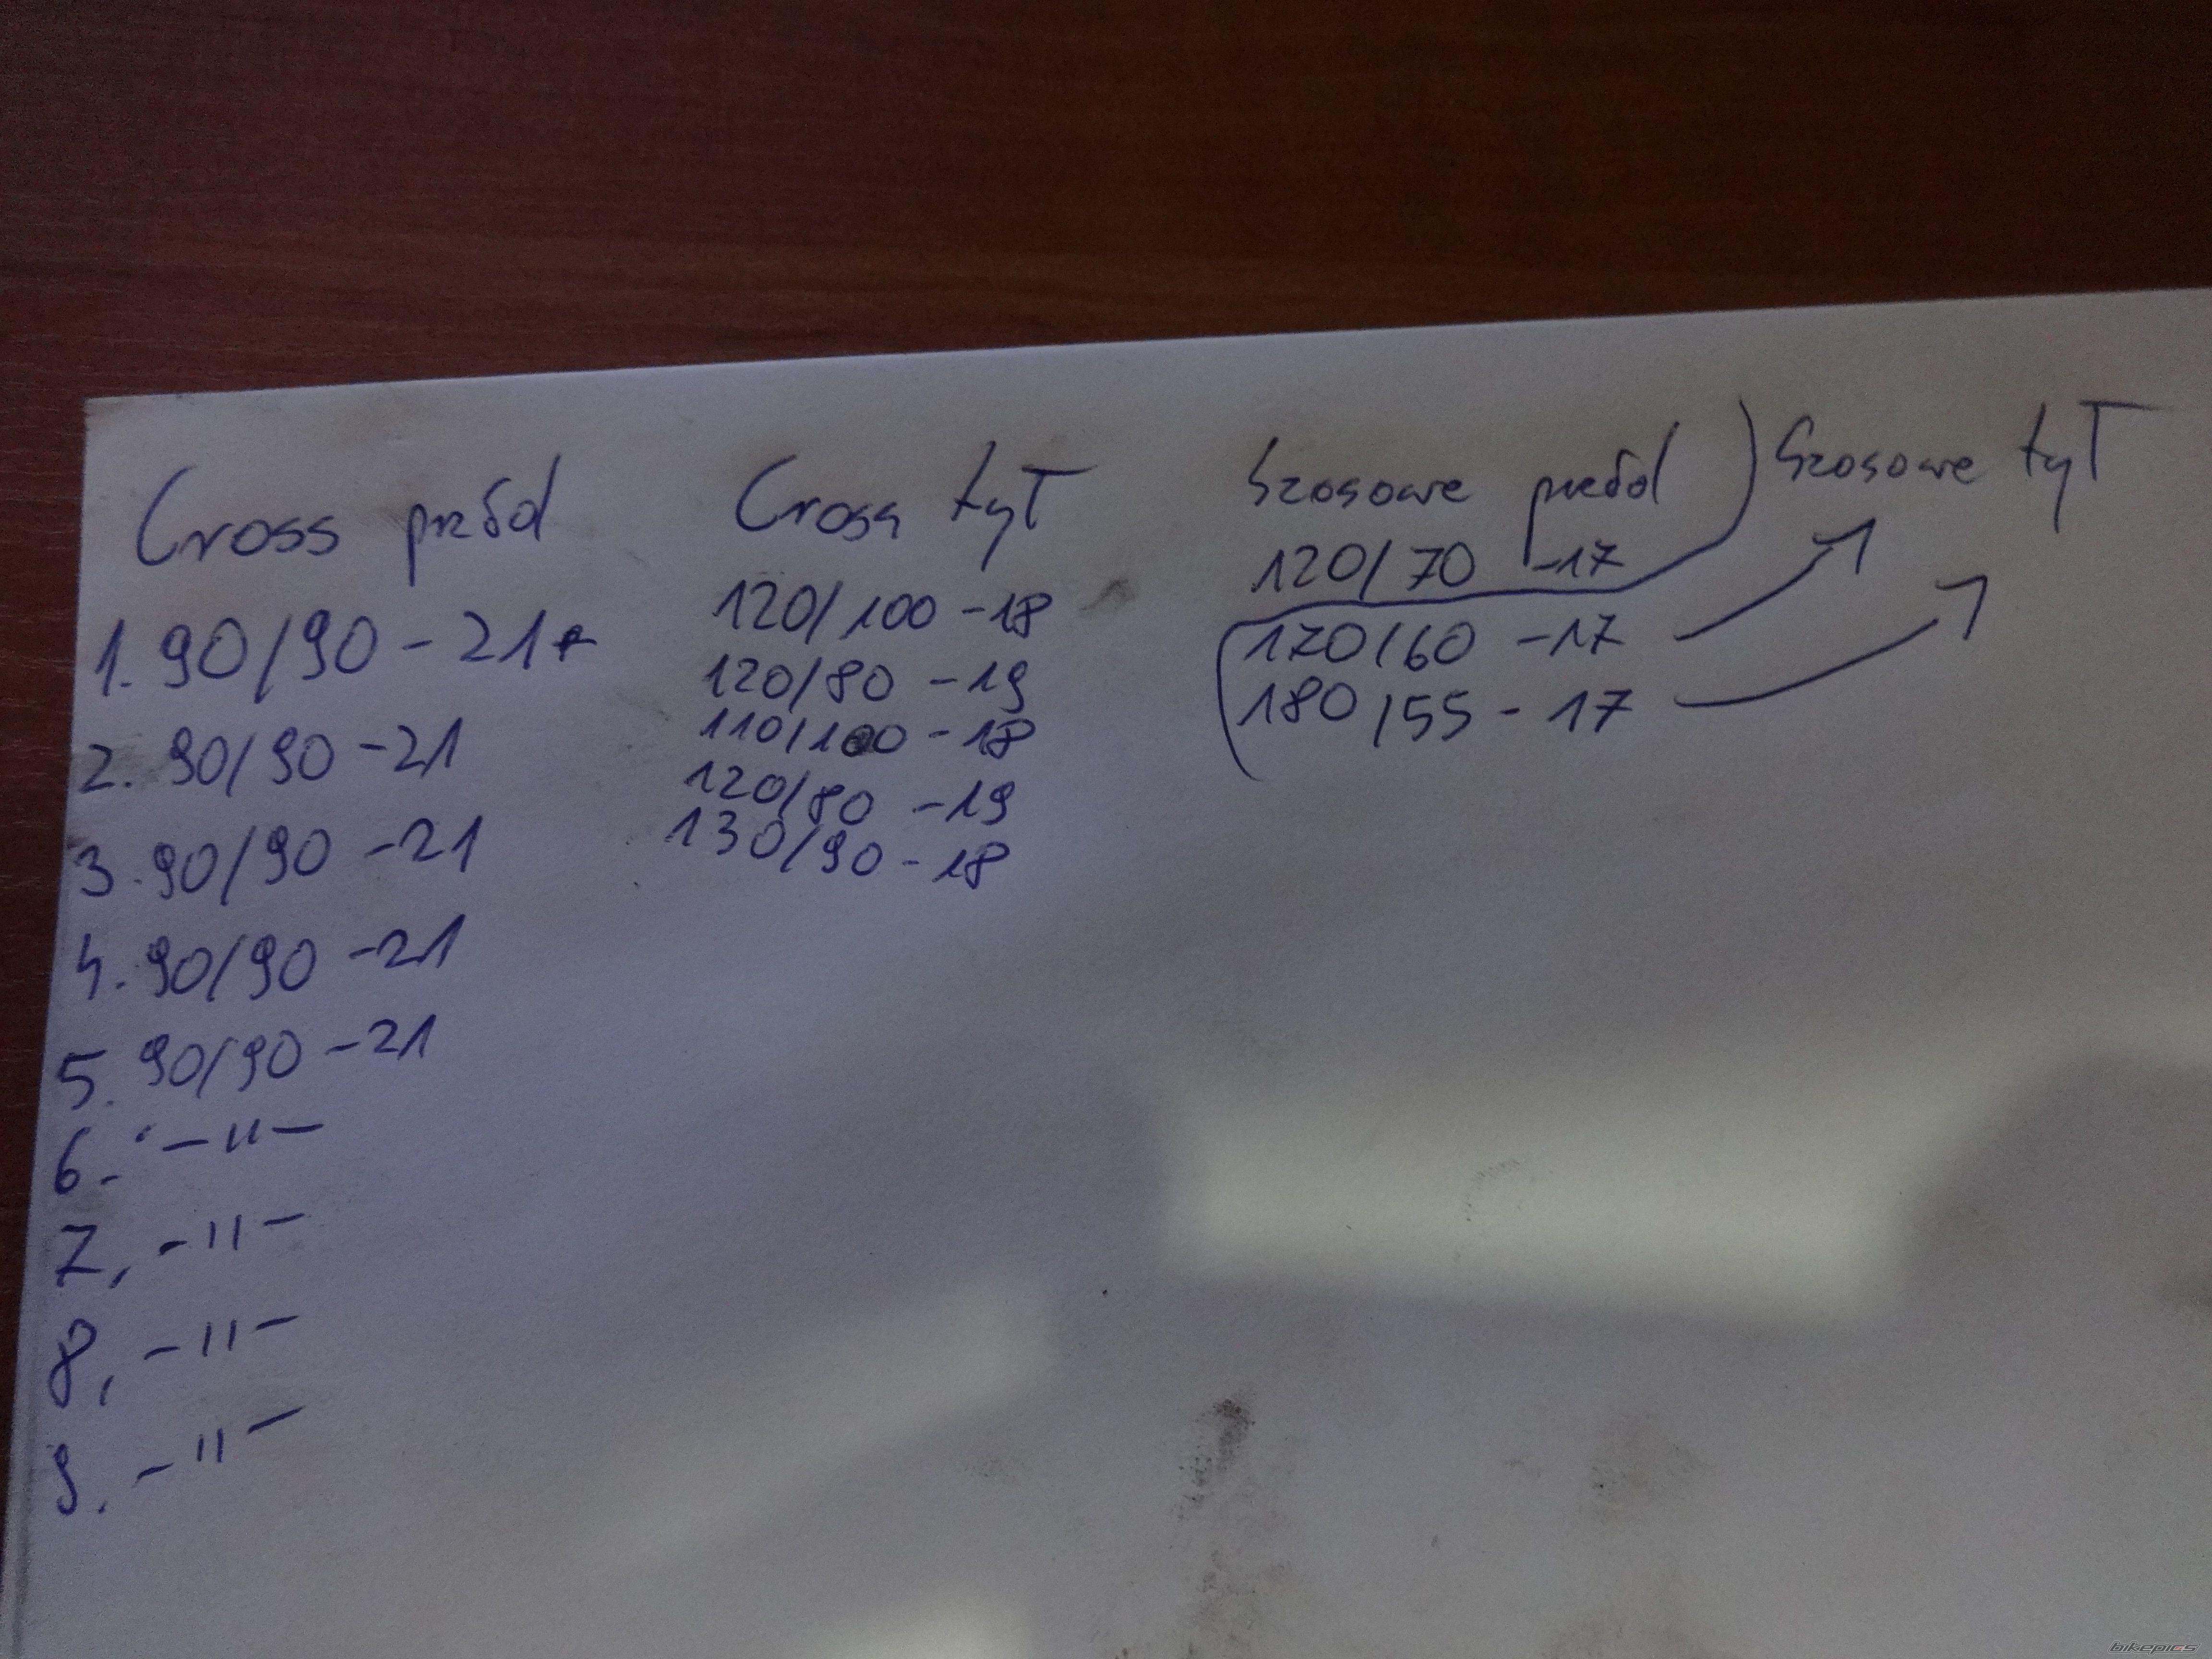 Cross przód
1. 90/90 - 21
2. 90/90 - 21
3. 90/90 - 21
4. 90/90 - 21
5. 90/90 - 21
6. - " -
7, - " -
8, - " -
9. - " -
Cross tył
120/100 - 18
120/80 - 19
110/100 - 18
120/80 - 19
130/90 - 18
Szosowe przód
120/70 - 17
170/60 - 17
180/55 - 17
Szosowe tył
bikepics